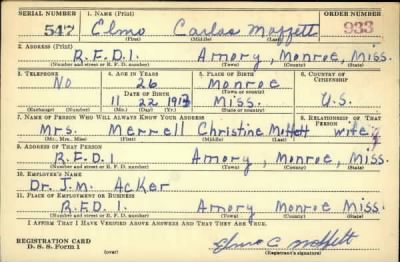 SERIAL NUMBER 1. NAME (Print) ORDER NUMBER
547 Elmo Carlos Moffett 933
(First) (Middle) (Last)
2. ADDRESS (Print)
R.F.D.1. Amory, Monroe, Miss.
(Number and street or R. F. D. number) (Town) (County) (State)
3. TELEPHONE 4. AGE IN YEARS 5. PLACE OF BIRTH 6. COUNTRY OF CITIZENSHIP
No 26 Monroe
DATE OF BIRTH (Town or county)
11 22 1913 Miss. U.S.
(Exchange) (Number) (Mo.) (Day) (Yr.) (State or country)
7. NAME OF PERSON WHO WILL ALWAYS KNOW YOUR ADDRESS 8. RELATIONSHIP OF THAT PERSON
Mrs. Merrell Christine Moffett wife
(Mr., Mrs., Miss) (First) (Middle) (Last)
9. ADDRESS OF THAT PERSON
R.F.D.1. Amory, Monroe, Miss.
(Number and street or R. F. D. number) (Town) (County) (State)
10. EMPLOYER'S NAME
Dr. J.M. Acker
11. PLACE OF EMPLOYMENT OR BUSINESS
R.F.D.1. Amory Monroe Miss.
(Number and street or R. F. D. number) (Town) (County) (State)
I AFFIRM THAT I HAVE VERIFIED ABOVE ANSWERS AND THAT THEY ARE TRUE.
REGISTRATION CARD
D. S. S. Form 1 (over) Elmo C Moffett
(Registrant's signature)